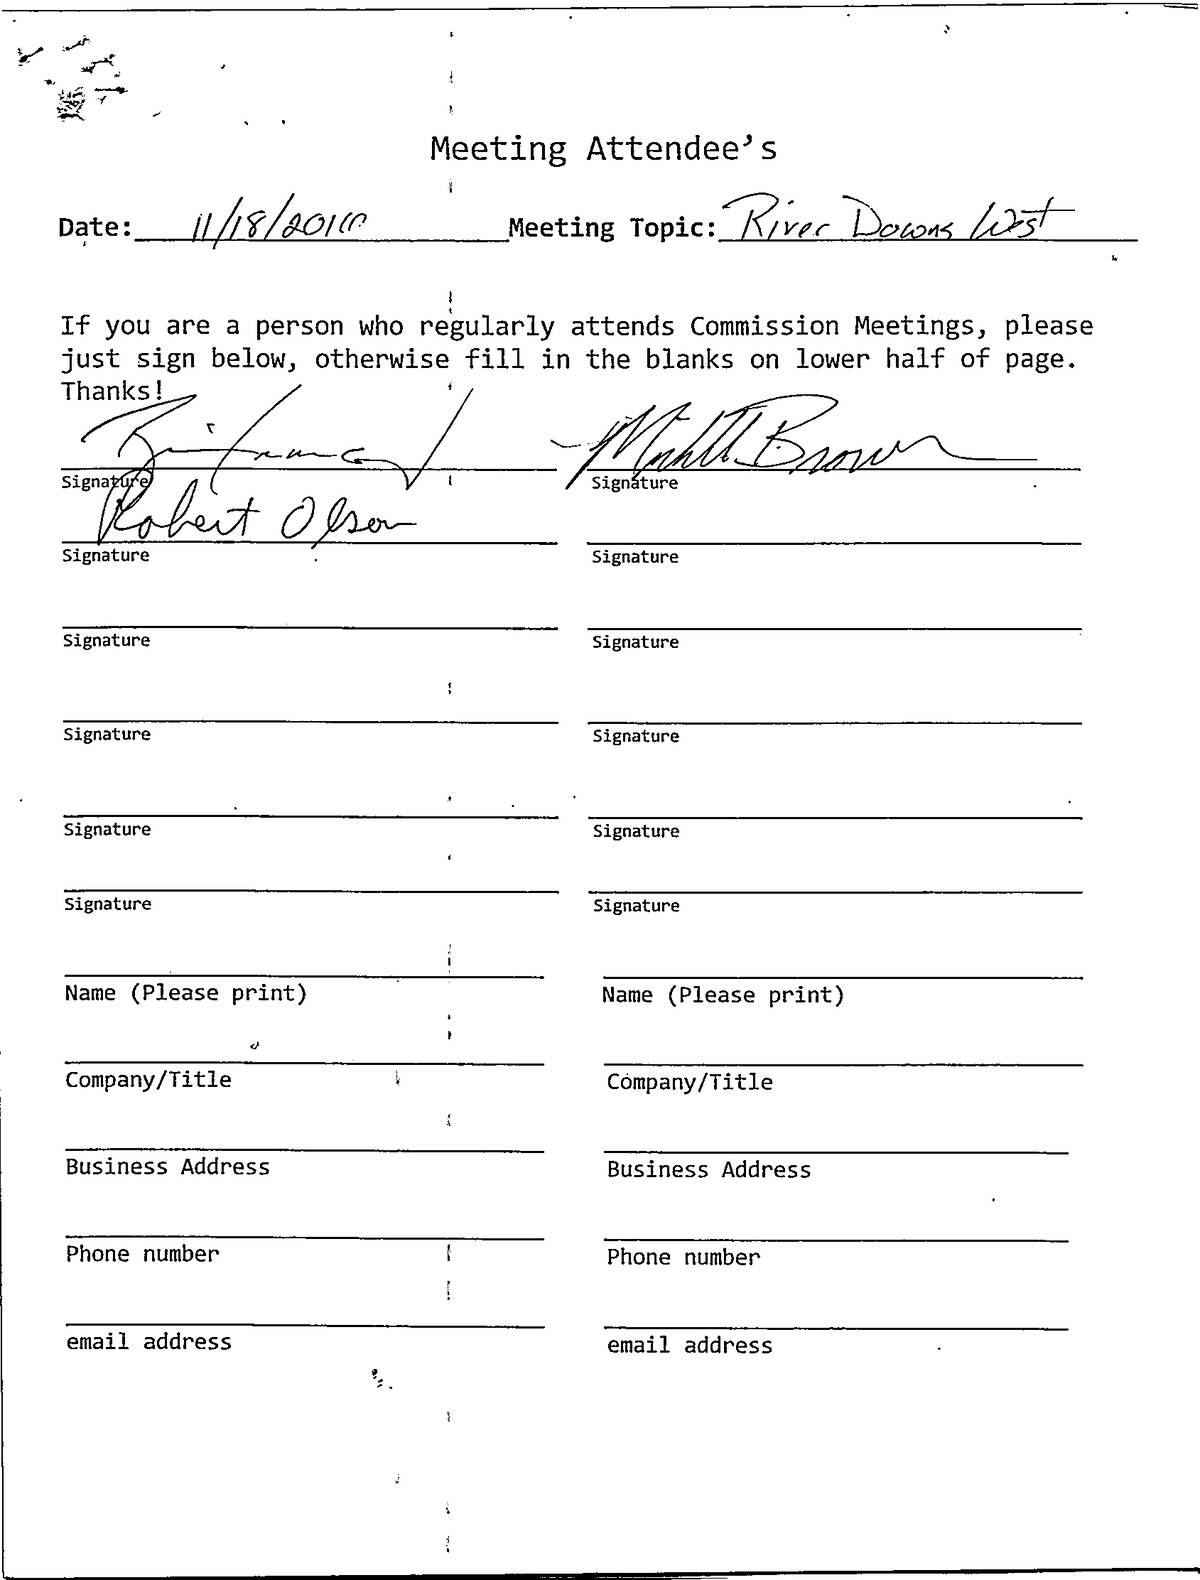 Meeting Attendee's
Date: 11/18/2010 Meeting Topic: River Downs West
If you are a person who regularly attends Commission Meetings, please
just sign below, otherwise fill in the blanks on lower half of page.
Thanks!
Brown
Signature Signature
Robert Olson
Signature Signature
Signature Signature
Signature Signature
Signature Signature
Signature Signature
Name (Please print) Name (Please print)
Company/Title Company/Title
Business Address Business Address
Phone number Phone number
email address email address